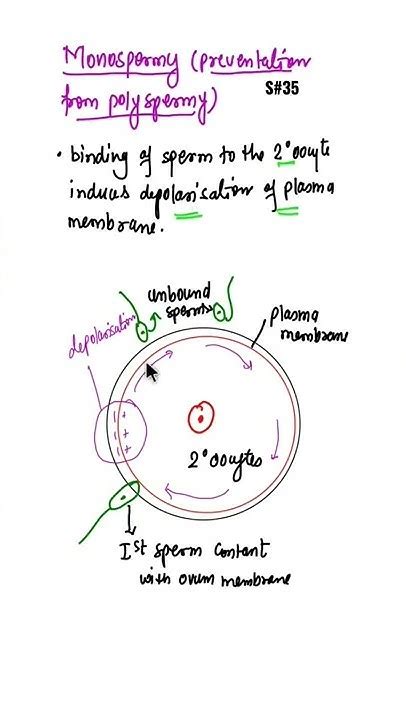 Monospermy (preventation
from polyspermy)
S#35
• binding of sperm to the 2° oocyte
induces depolarisation of plasma
membrane.
unbound
sperms
depolarisation
plasma
membrane
- +
- +
- +
2° oocytes
Ist sperm content
with ovum membrane